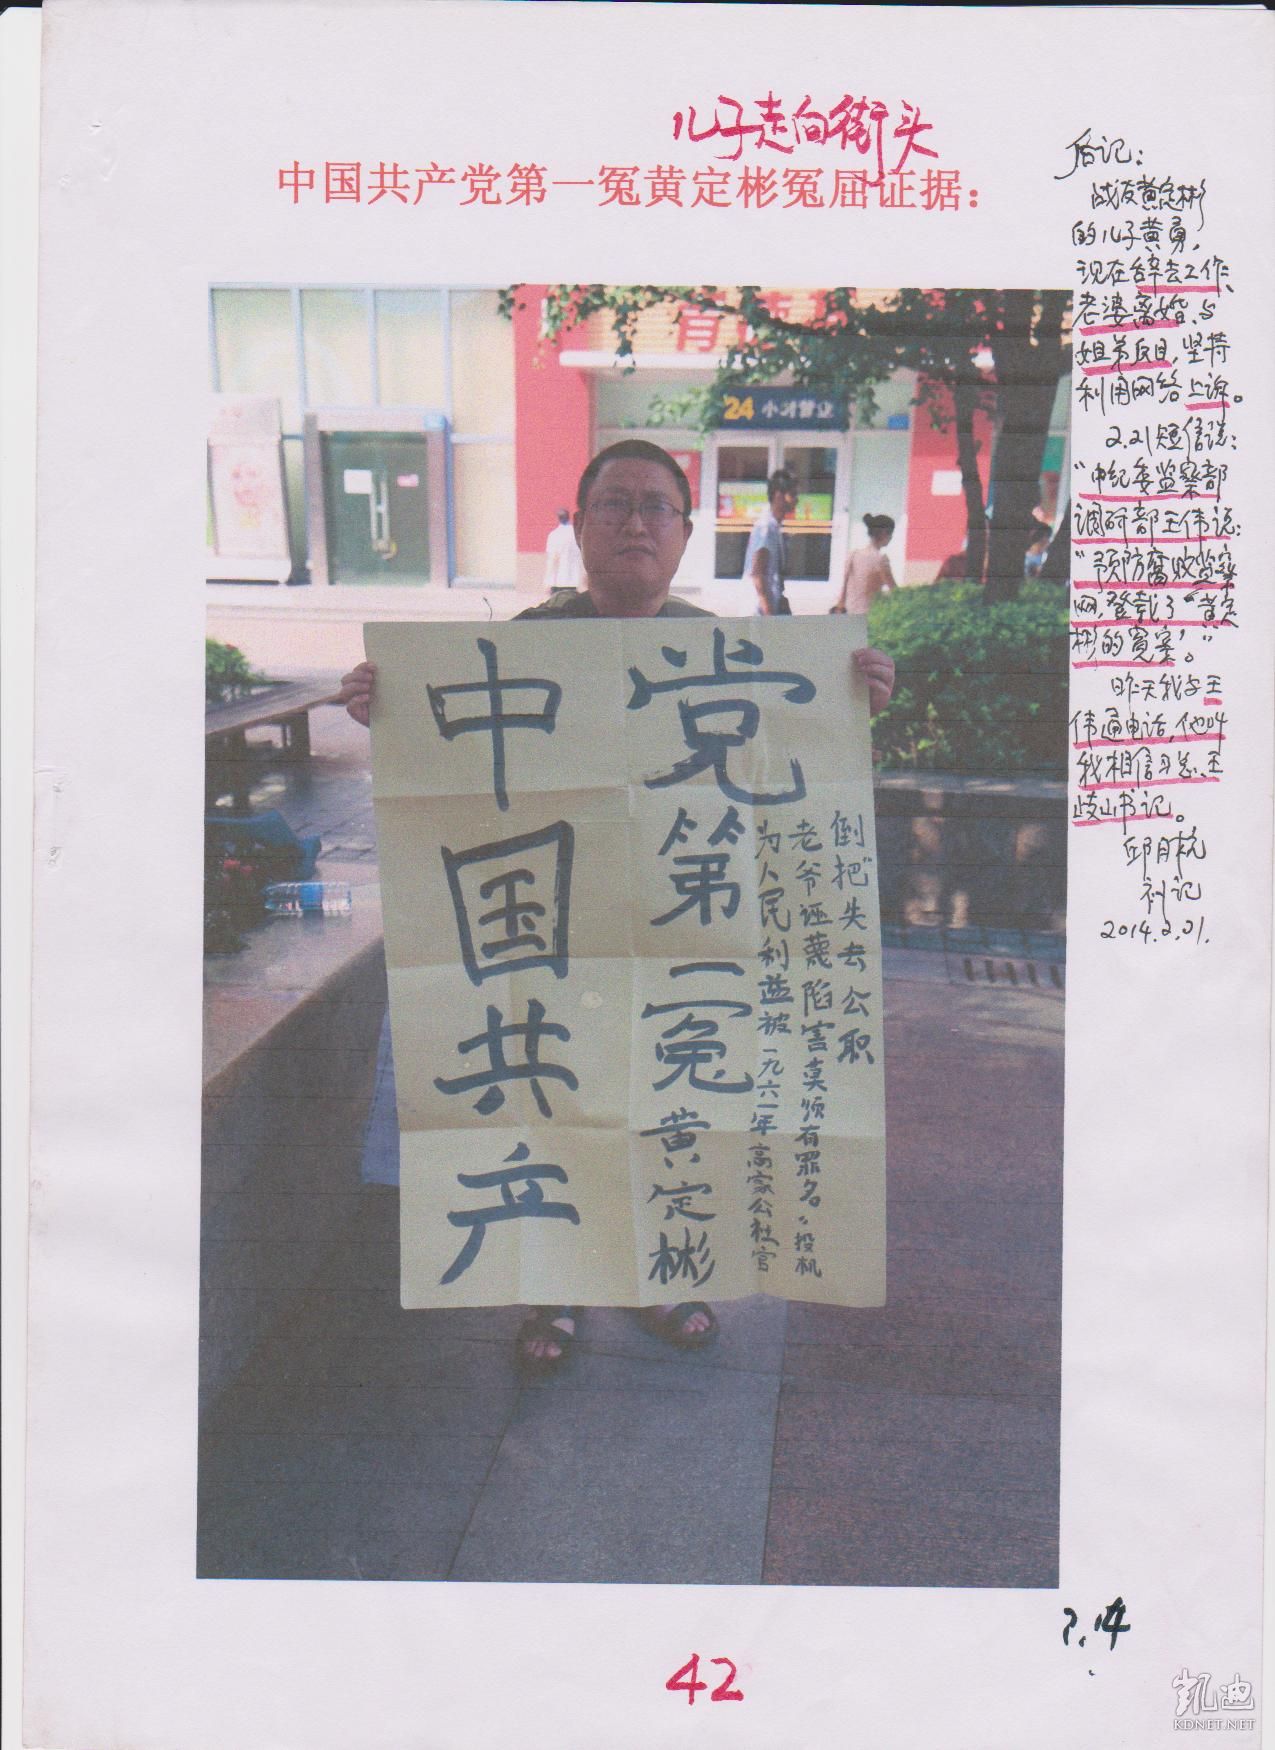 儿子走向街头
中国共产党第一冤黄定彬冤屈证据：
后记：
战友黄定彬
的儿子黄勇，
现在辞去工作、
老婆离婚、与
姐弟反目，坚持
利用网络上诉。
2.21短信说：
“中纪委监察部
调研部王伟说：
“预防腐败监察
网，登载了“黄定
彬的冤案”。”
昨天我与王
伟通电话，他叫
我相信习总、王
岐山书记。
邱月杭
补记
2014.2.21.
24小时营业
中国共产
党第一冤黄定彬
为人民利益被一九六一年高家公社官
老爷诬蔑陷害莫须有罪名“投机
倒把”失去公职
7.14
42
凯迪
KDNET.NET